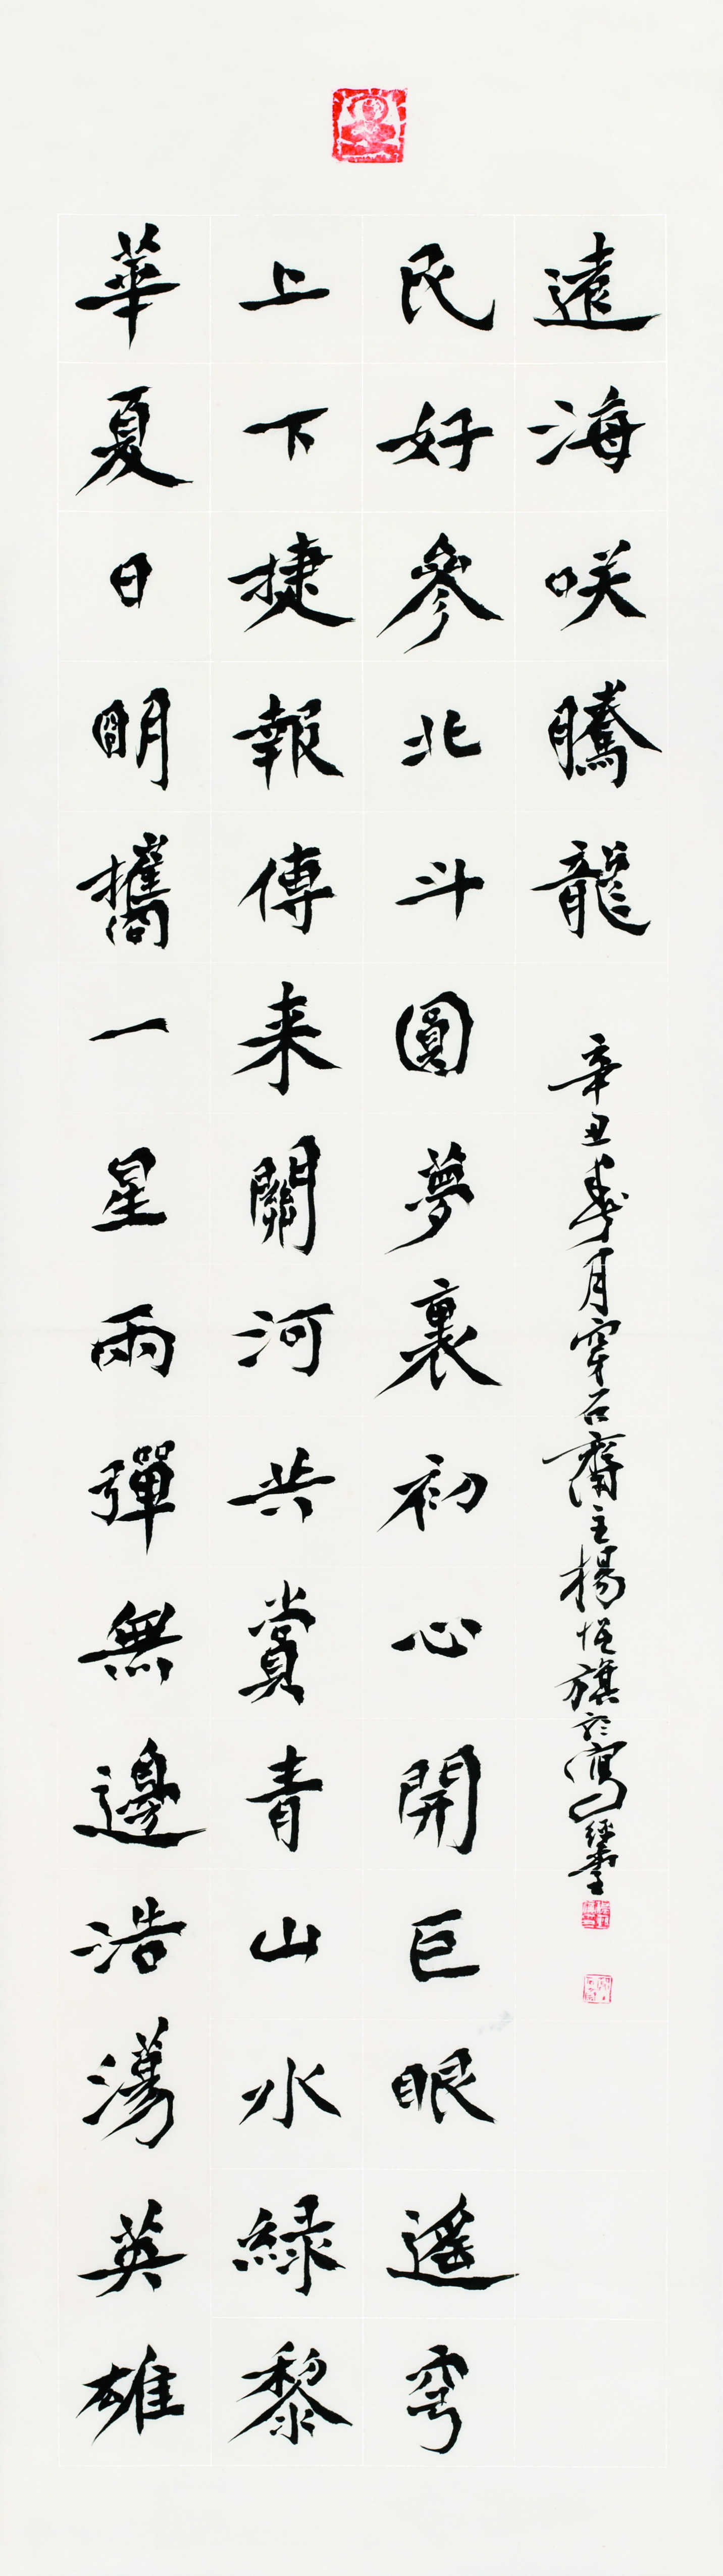 華夏日明攜一星兩彈無邊浩蕩英雄
上下捷報傳来關河共賞青山水綠黎
民好參北斗圓夢裏初心開巨眼遥穹
遠海咲騰龍
辛丑春月穿石齋主楊恆旗於寫